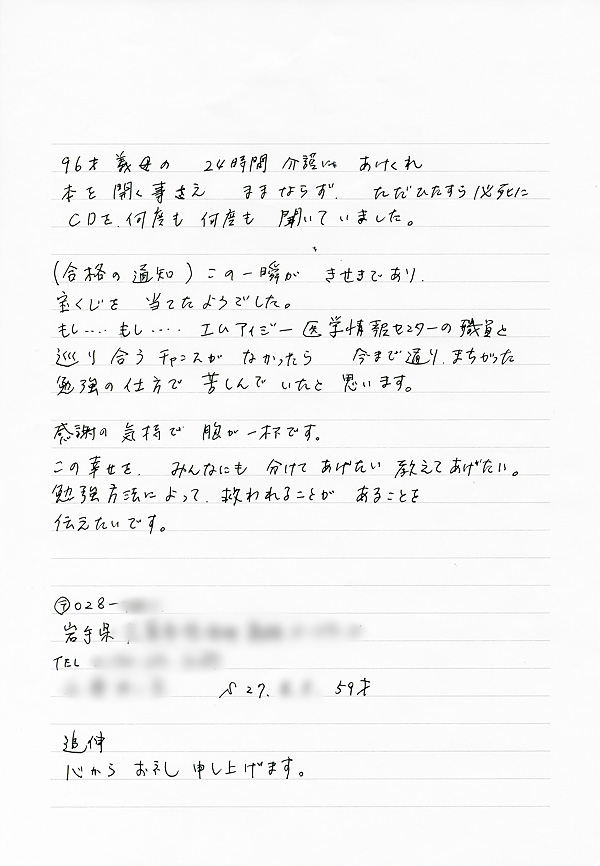 96才義母の 24時間介護に あけくれ
本を開く事さえ ままならず、 ただひたすら必死に
CDを、何度も何度も 聞いていました。
(合格の通知) この一瞬が きせきであり、
宝くじを 当てたようでした。
もし‥‥もし‥‥ エムアイジー医学情報センターの職員と
巡り合うチャンスが なかったら 今まで通り、まちがった
勉強の仕方で 苦しんで いたと 思います。
感謝の気持で 胸が一杯です。
この幸せを、 みんなにも 分けてあげたい 教えてあげたい。
勉強方法によって、救われることが あることを
伝えたいです。
〒028-
岩手県
TEL
S27. 59才
追伸
心から お礼し 申し上げます。